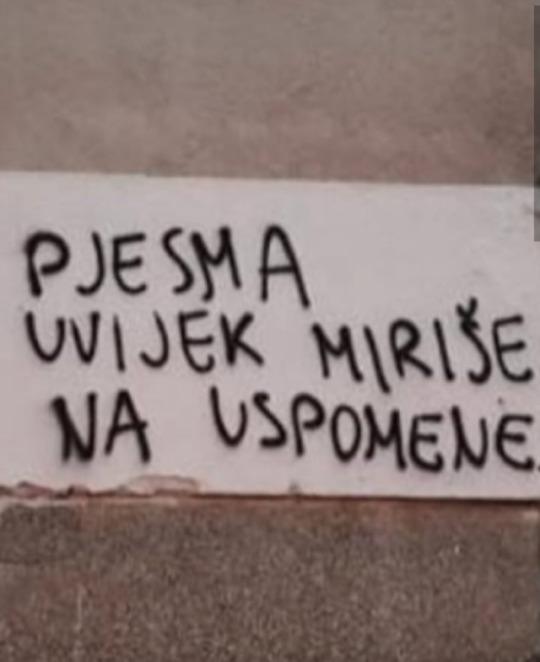 PJESMA
UVIJEK MIRIŠE
NA USPOMENE.